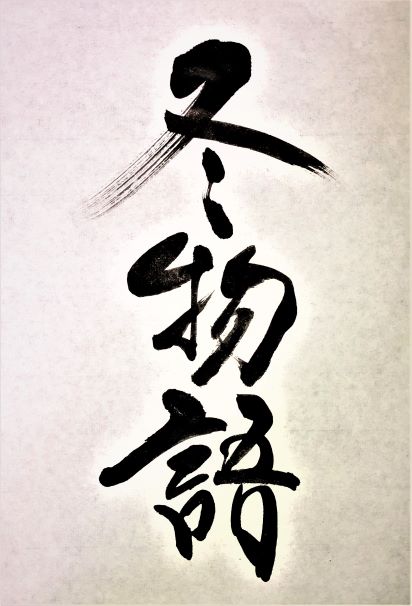 冬物語